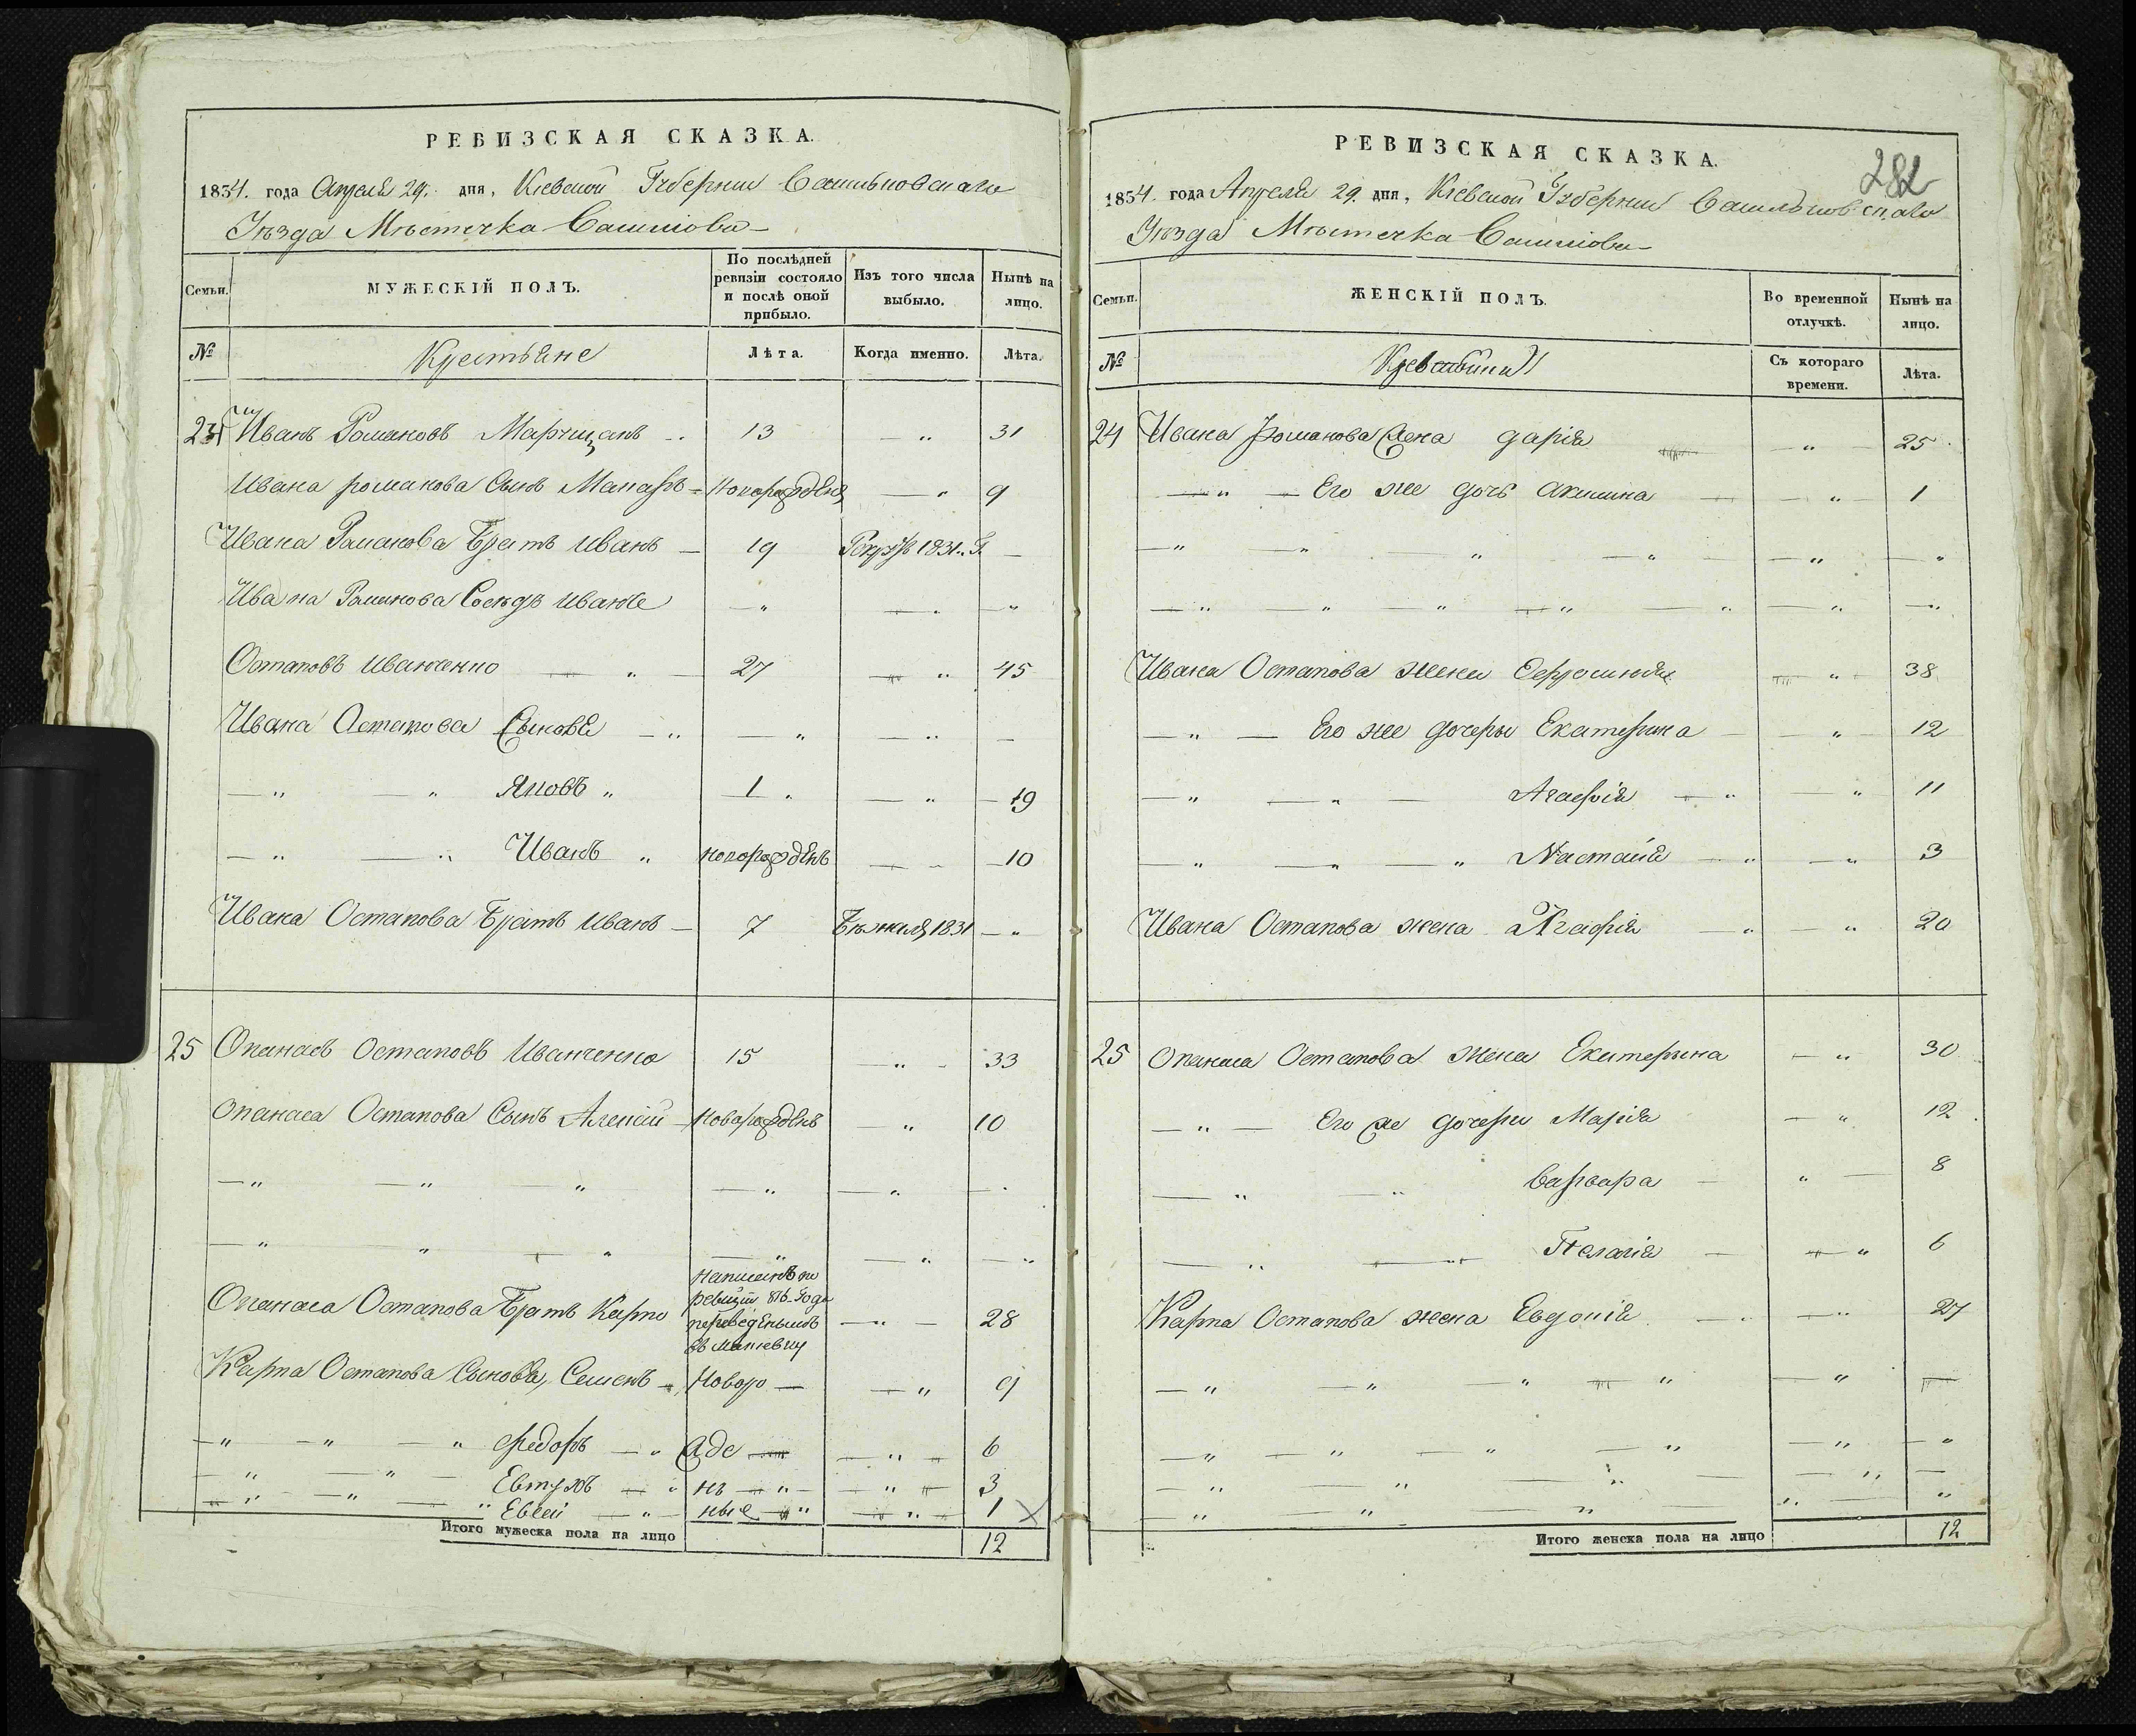 РЕВИЗСКАЯ СКАЗКА.
1834. года Апреля 29. дня, Кіевской Губерніи Васильковскаго
Уѣзда Мѣстечка
Семьи.
МУЖЕСКІЙ ПОЛЪ.
По послѣдней ревизіи состояло и послѣ оной прибыло.
Изъ того числа выбыло.
Нынѣ на лицо.
№
Крестьяне
Лѣта.
Когда именно.
Лѣта.
24 Иванъ Романовъ 13 — „ 31
Ивана романова Сынъ Макаръ новорожденъ — „ 9
Ивана Романова Братъ Иванъ — 19 1831. Г. —
Ивана Романова Сосѣдъ Иванъ — „ — „ — „
Остаповъ Иванченко — „ — 27 — „ 45
Ивана Остапова Сыновья — „ — „ — „ —
— „ — „ Яковъ „ 1 „ — „ — 19
— „ — „ Иванъ „ новорожденъ — „ — 10
Ивана Остапова Братъ Иванъ — 7 Бѣжалъ 1831 — „
25 Опанасъ Остаповъ Иванченко 15 — „ — 33
Опанаса Остапова Сынъ Алексѣй — новорожденъ — „ 10
— „ — „ „ — „ — „ — „
— „ „ — „ — „ — „ — „
Опанаса Остапова Братъ Карпо
написанъ по
ревизіи 816. года
переведеннымъ
въ
— „ — 28
Карпа Остапова Сыновья, Семенъ — Ново — — „ 9
— „ — „ — „ Федоръ — „ — „ — 6
— „ — „ — Евтухъ — „ — „ — — „ — 3
— „ — „ — „ Евсей — „ — ные — „ — „ — 1
Итого мужеска пола на лицо 12
РЕВИЗСКАЯ СКАЗКА.
282
1834. года Апреля 29. дня, Кіевской Губерніи Васильковскаго
Уѣзда Мѣстечка
Семьи.
ЖЕНСКІЙ ПОЛЪ.
Во временной отлучкѣ.
Нынѣ на лицо.
№
Съ котораго времени.
Лѣта.
24 Ивана Романова Жена Дарія — „ — 25
— „ — Его же дочь Акилина — — „ — 1
— „ — „ — „ — „ — — „ — „
— „ — „ — „ — „ — „ — „ — „
Ивана Остапова жена Ефросинія — „ — 38
— „ — Его же дочери Екатерина — — „ — 12
— „ — „ — Агафія — „ — „ 11
— „ — „ — „ Настасія — „ — „ 3
Ивана Остапова жена Агафія — „ — „ 20
25 Опанаса Остапова Жена Екатерина — „ 30
— „ — Его же дочери Марія — „ 12
— „ — „ Варвара — „ — 8
— „ — „ Пелагія — — „ 6
Карпа Остапова жена Евдокія — „ — „ 27
— „ — „ — „ — „ — „ —
— „ — „ — „ — „ — „ — „
— „ — „ — „ — — „ —
— „ — „ — „ — „ — „
Итого женска пола на лицо 12